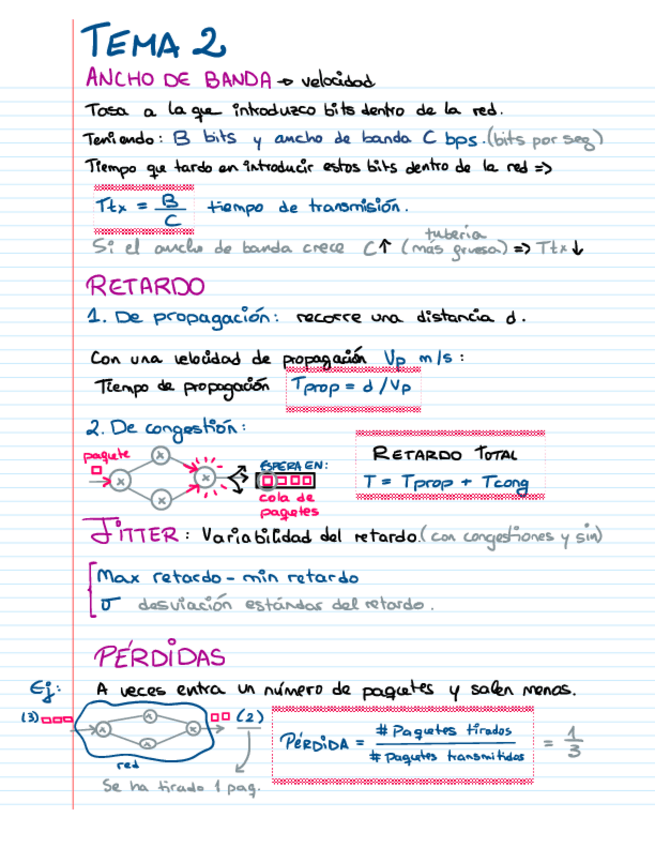 TEMA 2
ANCHO DE BANDA → velocidad
Tasa a la que introduzco bits dentro de la red.
Teniendo: B bits y ancho de banda C bps. (bits por seg)
Tiempo que tardo en introducir estos bits dentro de la red =>
Ttx = B / C tiempo de transmisión.
tubería
Si el ancho de banda crece C↑ (más gruesa) => Ttx↓
RETARDO
1. De propagación: recorre una distancia d.
Con una velocidad de propagación Vp m/s:
Tiempo de propagación Tprop = d/Vp
2. De congestión:
paquete
ESPERA EN:
cola de
paquetes
RETARDO TOTAL
T = Tprop + Tcong
JITTER: Variabilidad del retardo. (con congestiones y sin)
Max retardo - min retardo
σ desviación estándar del retardo.
PÉRDIDAS
Ej: A veces entra un número de paquetes y salen menos.
(3) (2)
red
Se ha tirado 1 paq.
PÉRDIDA = # Paquetes tirados / # Paquetes transmitidos = 1/3